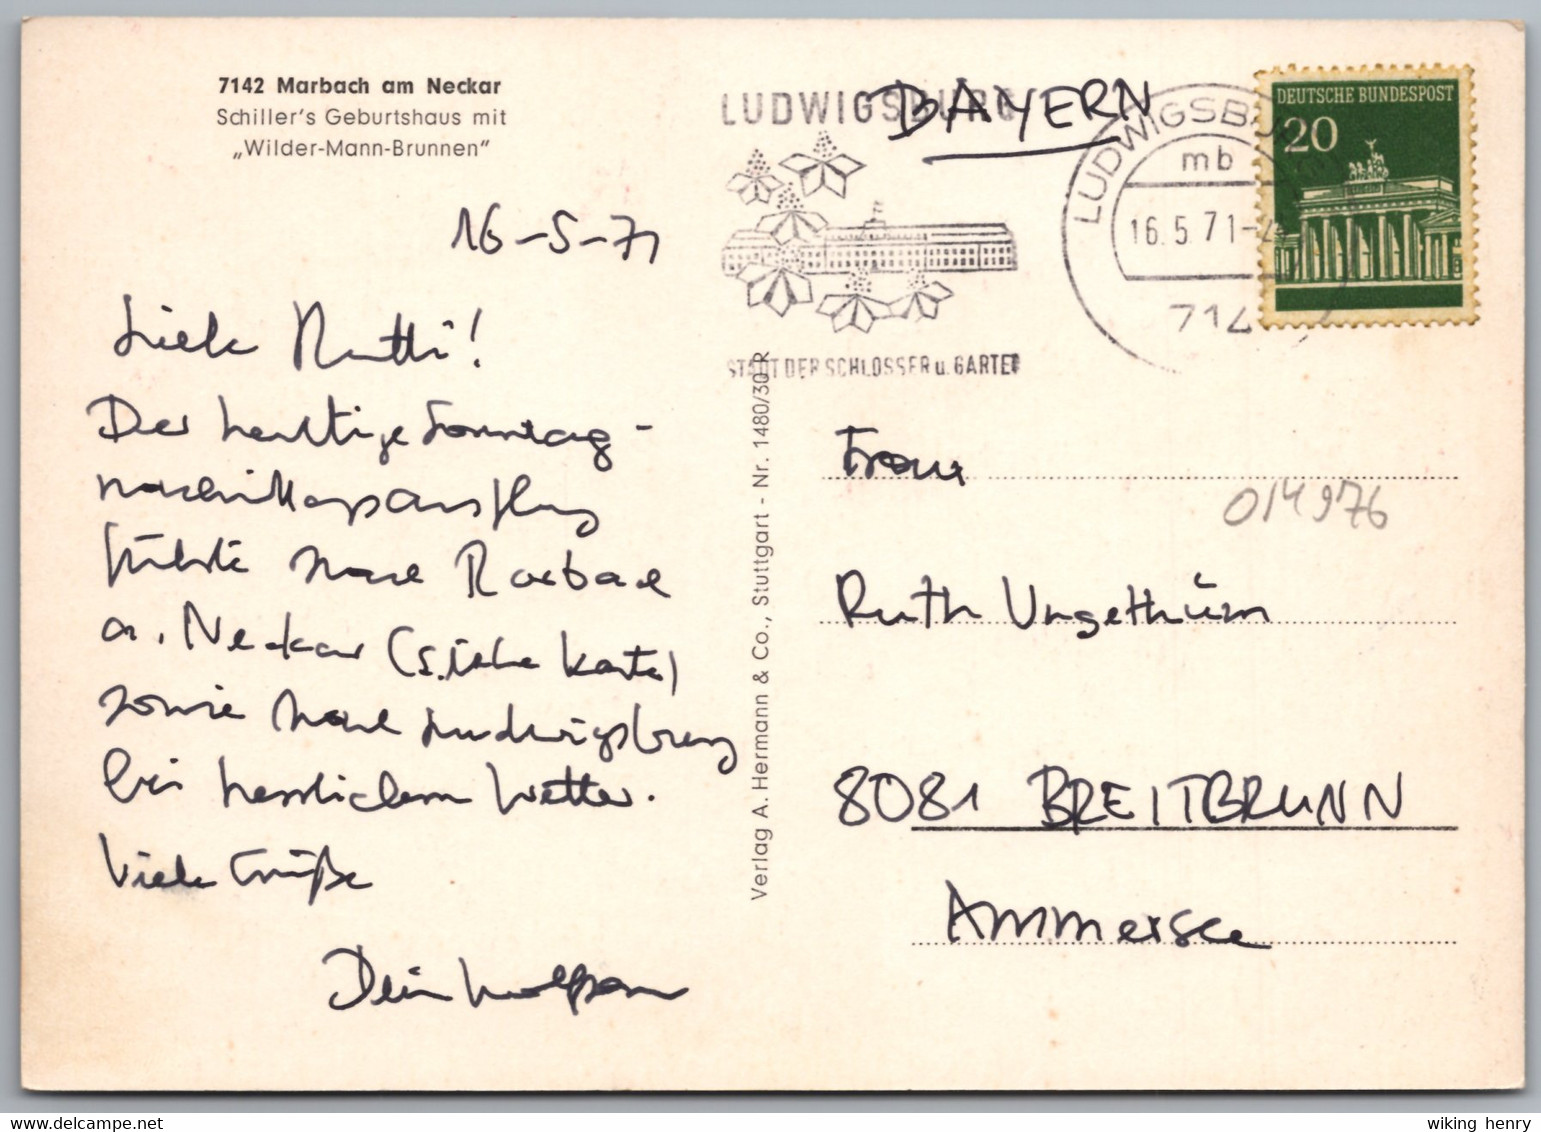 7142 Marbach am Neckar
Schiller's Geburtshaus mit
„Wilder-Mann-Brunnen"
16-5-71
Liebe Mutti!
Der heutige Sonntag-
nachmittagsausflug
führte nach Marbach
a. Neckar (siehe Karte)
sowie nach Ludwigsburg
bei herrlichem Wetter.
Viele Grüße
Dein Wolfram
Verlag A. Hermann & Co., Stuttgart - Nr. 1480/30 R
LUDWIGSBURG
STADT DER SCHLÖSSER u. GÄRTEN
BAYERN
LUDWIGSBURG
mb
16.5.71
714
DEUTSCHE BUNDESPOST
20
Frau
014976
Ruth Ungethüm
8081 BREITBRUNN
Ammersee
wiking henry